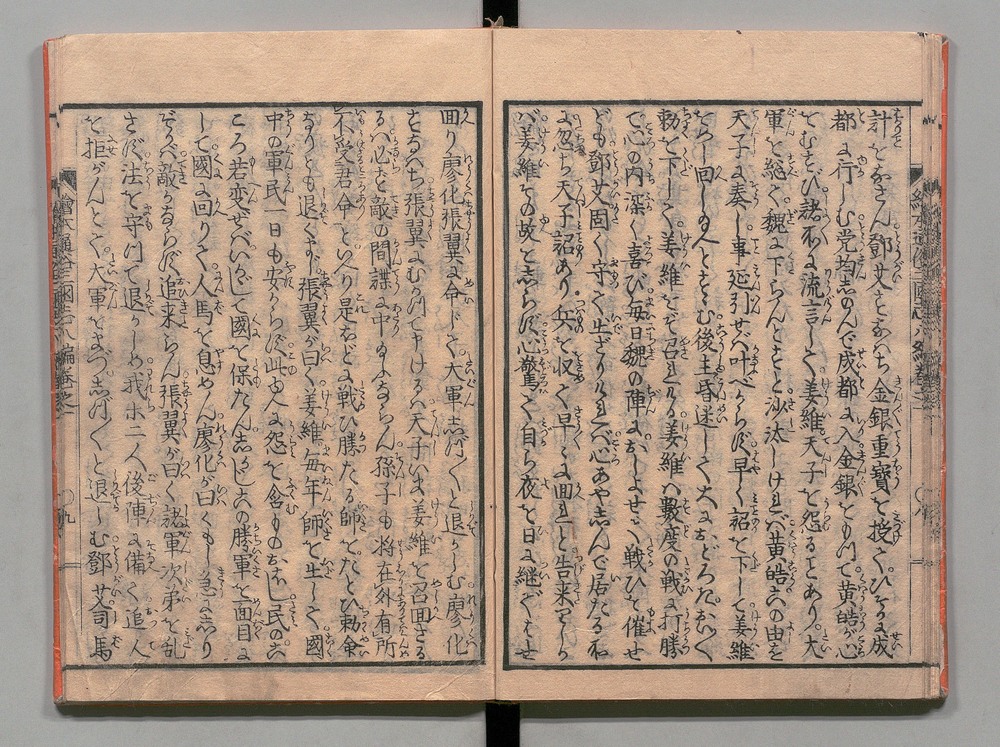 計をなさん鄧艾すなハち金銀重寶を授てひそかに成
都に行しむ党均志のんで成都に入金銀をもつて黄皓が心
をむすび諸所に流言して姜維天子を怨ることあり。大
軍を総て魏に下らんとすと沙汰しけれバ黄皓この由を
天子に奏し事延引せバ叶べからず早く詔を下して姜維
をめし回し給へとすゝむ後主昏迷して大におどろきいそぎ
勅を下して姜維をぞ召れける姜維ハ數度の戦に打勝
て心の内深く喜び毎日魏の陣におしよせて戦ひを催せ
ども鄧艾固く守て出ざりけれバ心あやしんで居たる所
に忽ち天子詔あり兵を収て早々に回れと告来りしか
バ姜維その故を志らず心驚て自ら夜を日に継でもせ
回り廖化張翼に命じて大軍志づ〱と退かしむ廖化
すなハち張翼にむかつて申けるハ天子いま姜維を召回さる
るハ必ず敵の間諜に中りしならん孫子も将在外有所
不受君命といへり是ほど戦ひ勝たる師をたとひ勅命
なりとも退くべからず張翼が曰く姜維毎年師を出して國
中の軍民一日も安からず此ゆへに怨を含ものおほし民のこ
ころ若変ぜバいかにして國を保たん志かじこの勝軍を面目に
して國に回りて人馬を息めん廖化が曰くもし急に志り
ぞかバ敵かならず追来らん張翼が曰く諸軍次第を乱
さず法を守つて退かしめ我ホ二人後陣に備て追人
を拒がんとて大軍をまづ志づ〱と退しむ鄧艾司馬
繪本通俗三國志八編巻之一
○八
繪本通俗三國志八編巻之一
○九